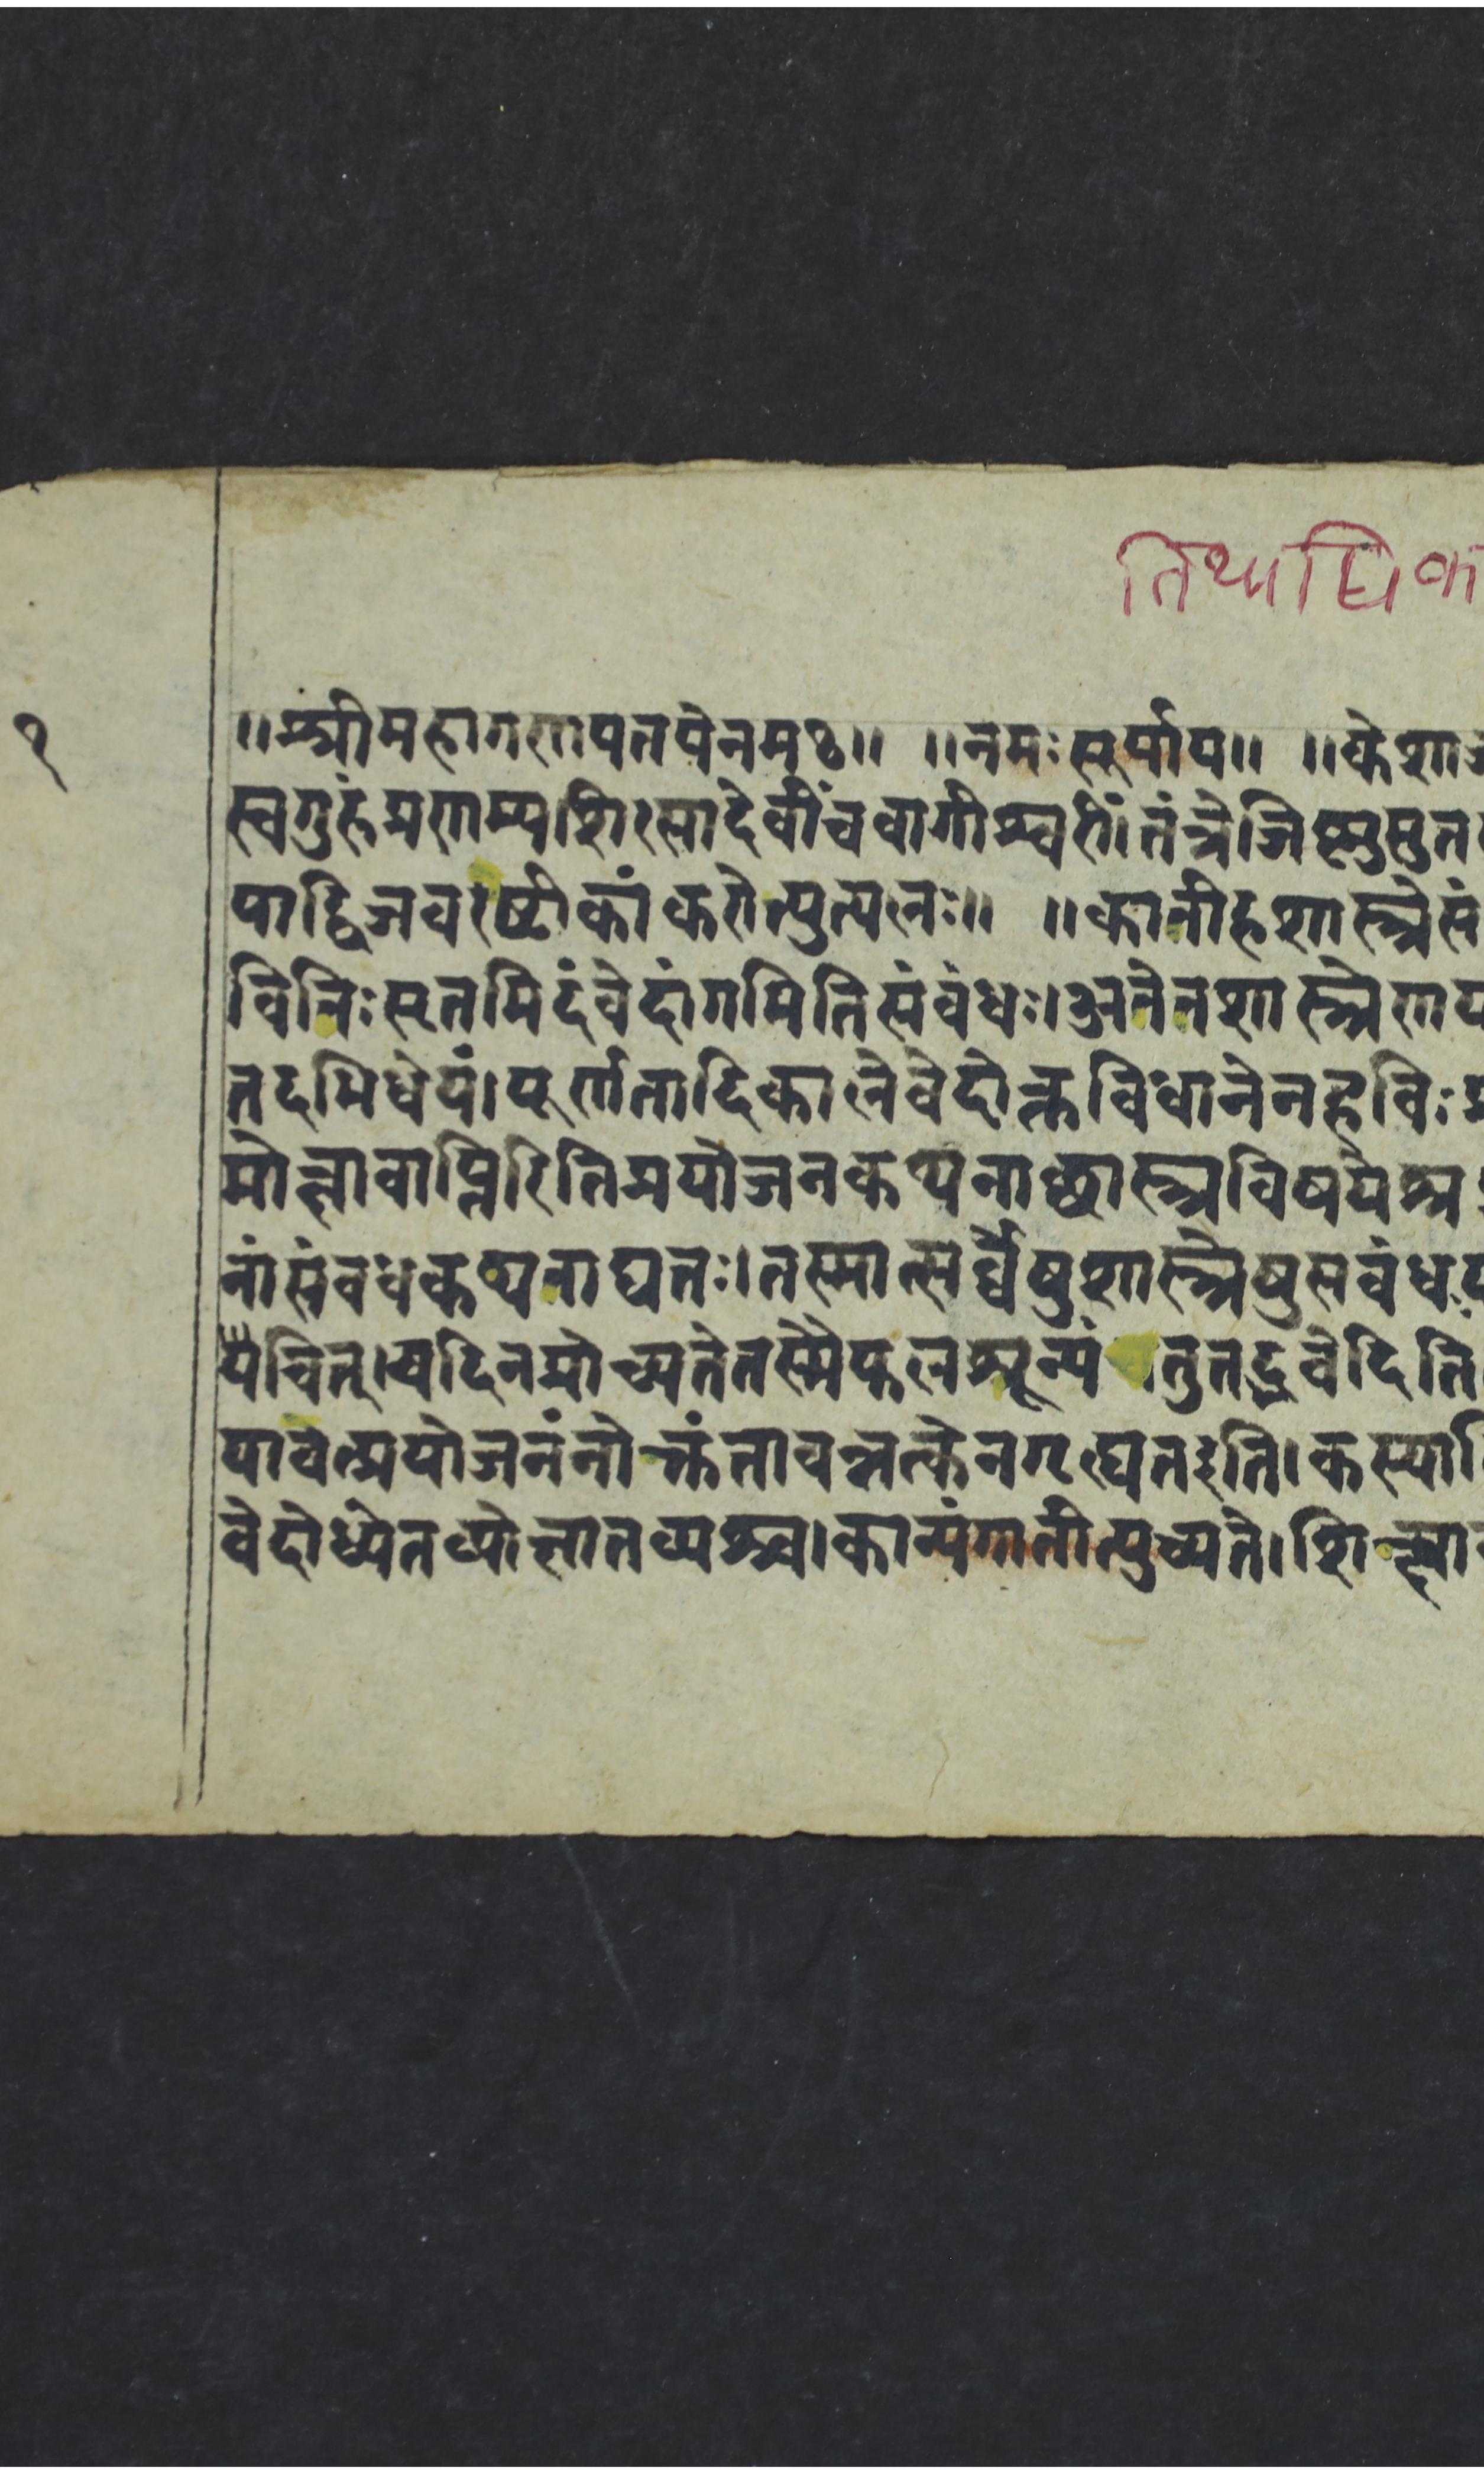 तिथ्याधिका
१
॥श्रीमहागणपतयेनमः॥ ॥नमःसूर्याय॥ ॥केशा
स्वगुरुंप्रणम्यशिरसादेवींचवागीश्वरीं।तंत्रेजिष्णुसुत
याद्द्विजवरष्टीकांकरोत्युत्पलः॥ ॥कानीहशास्त्रेसं
विनिःसृतमिदंवेदांगमितिसंवंधः।अनेनशास्त्रेणय
तदभिधेयं।पूर्णतादिकालेवेदोक्तविधानेनहविः
मोक्षावाप्तिरितिप्रयोजनकथनाच्छास्त्रविषयेश्र
नांसंवधकथनाद्यतः।तस्मात्सर्व्वेषुशास्त्रेषुसवंधः
यैचित्।यदिनप्रोच्यतेतस्मैफलशून्यं।तुतद्भवेदिति
यावत्प्रयोजनंनोक्तंतावत्तत्केनगृह्यतइति।कस्यापि
वेदोध्येतव्योज्ञातव्यश्च।कान्यंगानीत्युच्यते।शिक्षा